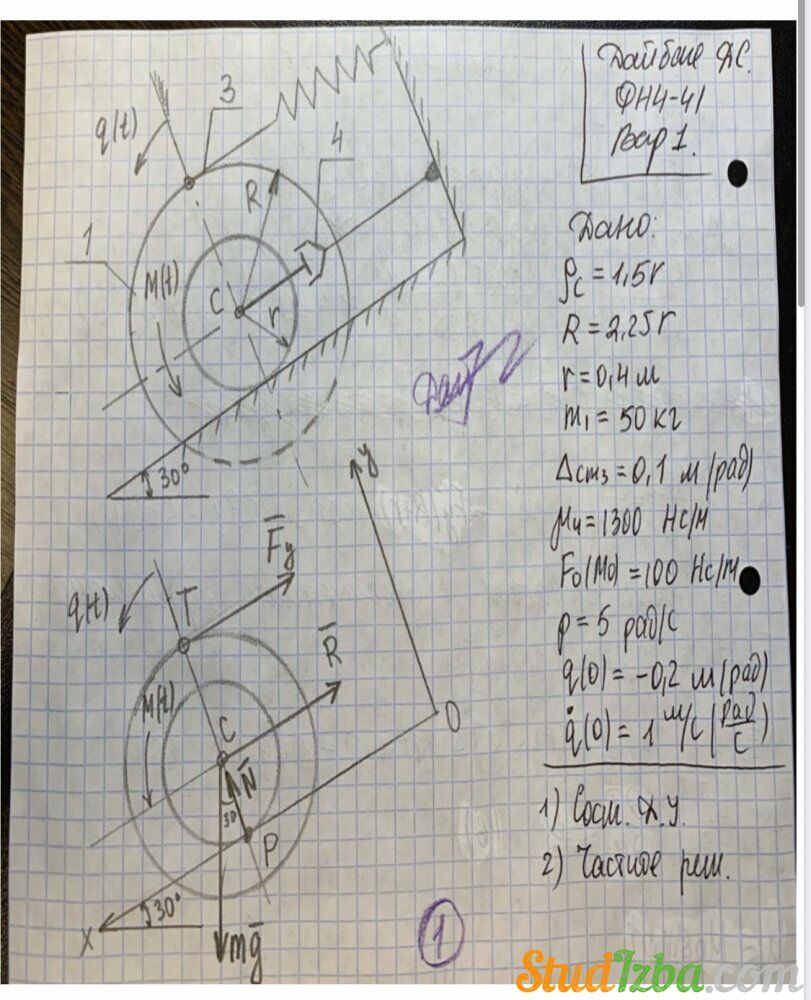 ФН4-41
Вар 1.
q(t)
3
4
R
1
M(t)
C
r
30°
Дано:
ρc = 1,5r
R = 2,25r
r = 0,4 м
m₁ = 50 кг
Δcm₃ = 0,1 м (рад)
μ₄ = 1300 Нс/м
F₀(M₀) = 100 Нс/м
p = 5 рад/с
q(0) = -0,2 м (рад)
q̇(0) = 1 м/с (рад/с)
1) Сост. Д.У.
2) Частное реш.
y
q(t)
T
F̅y
R̅
M(t)
C
N̅
30
O
P
X
30°
mg̅
1
StudIzba.com